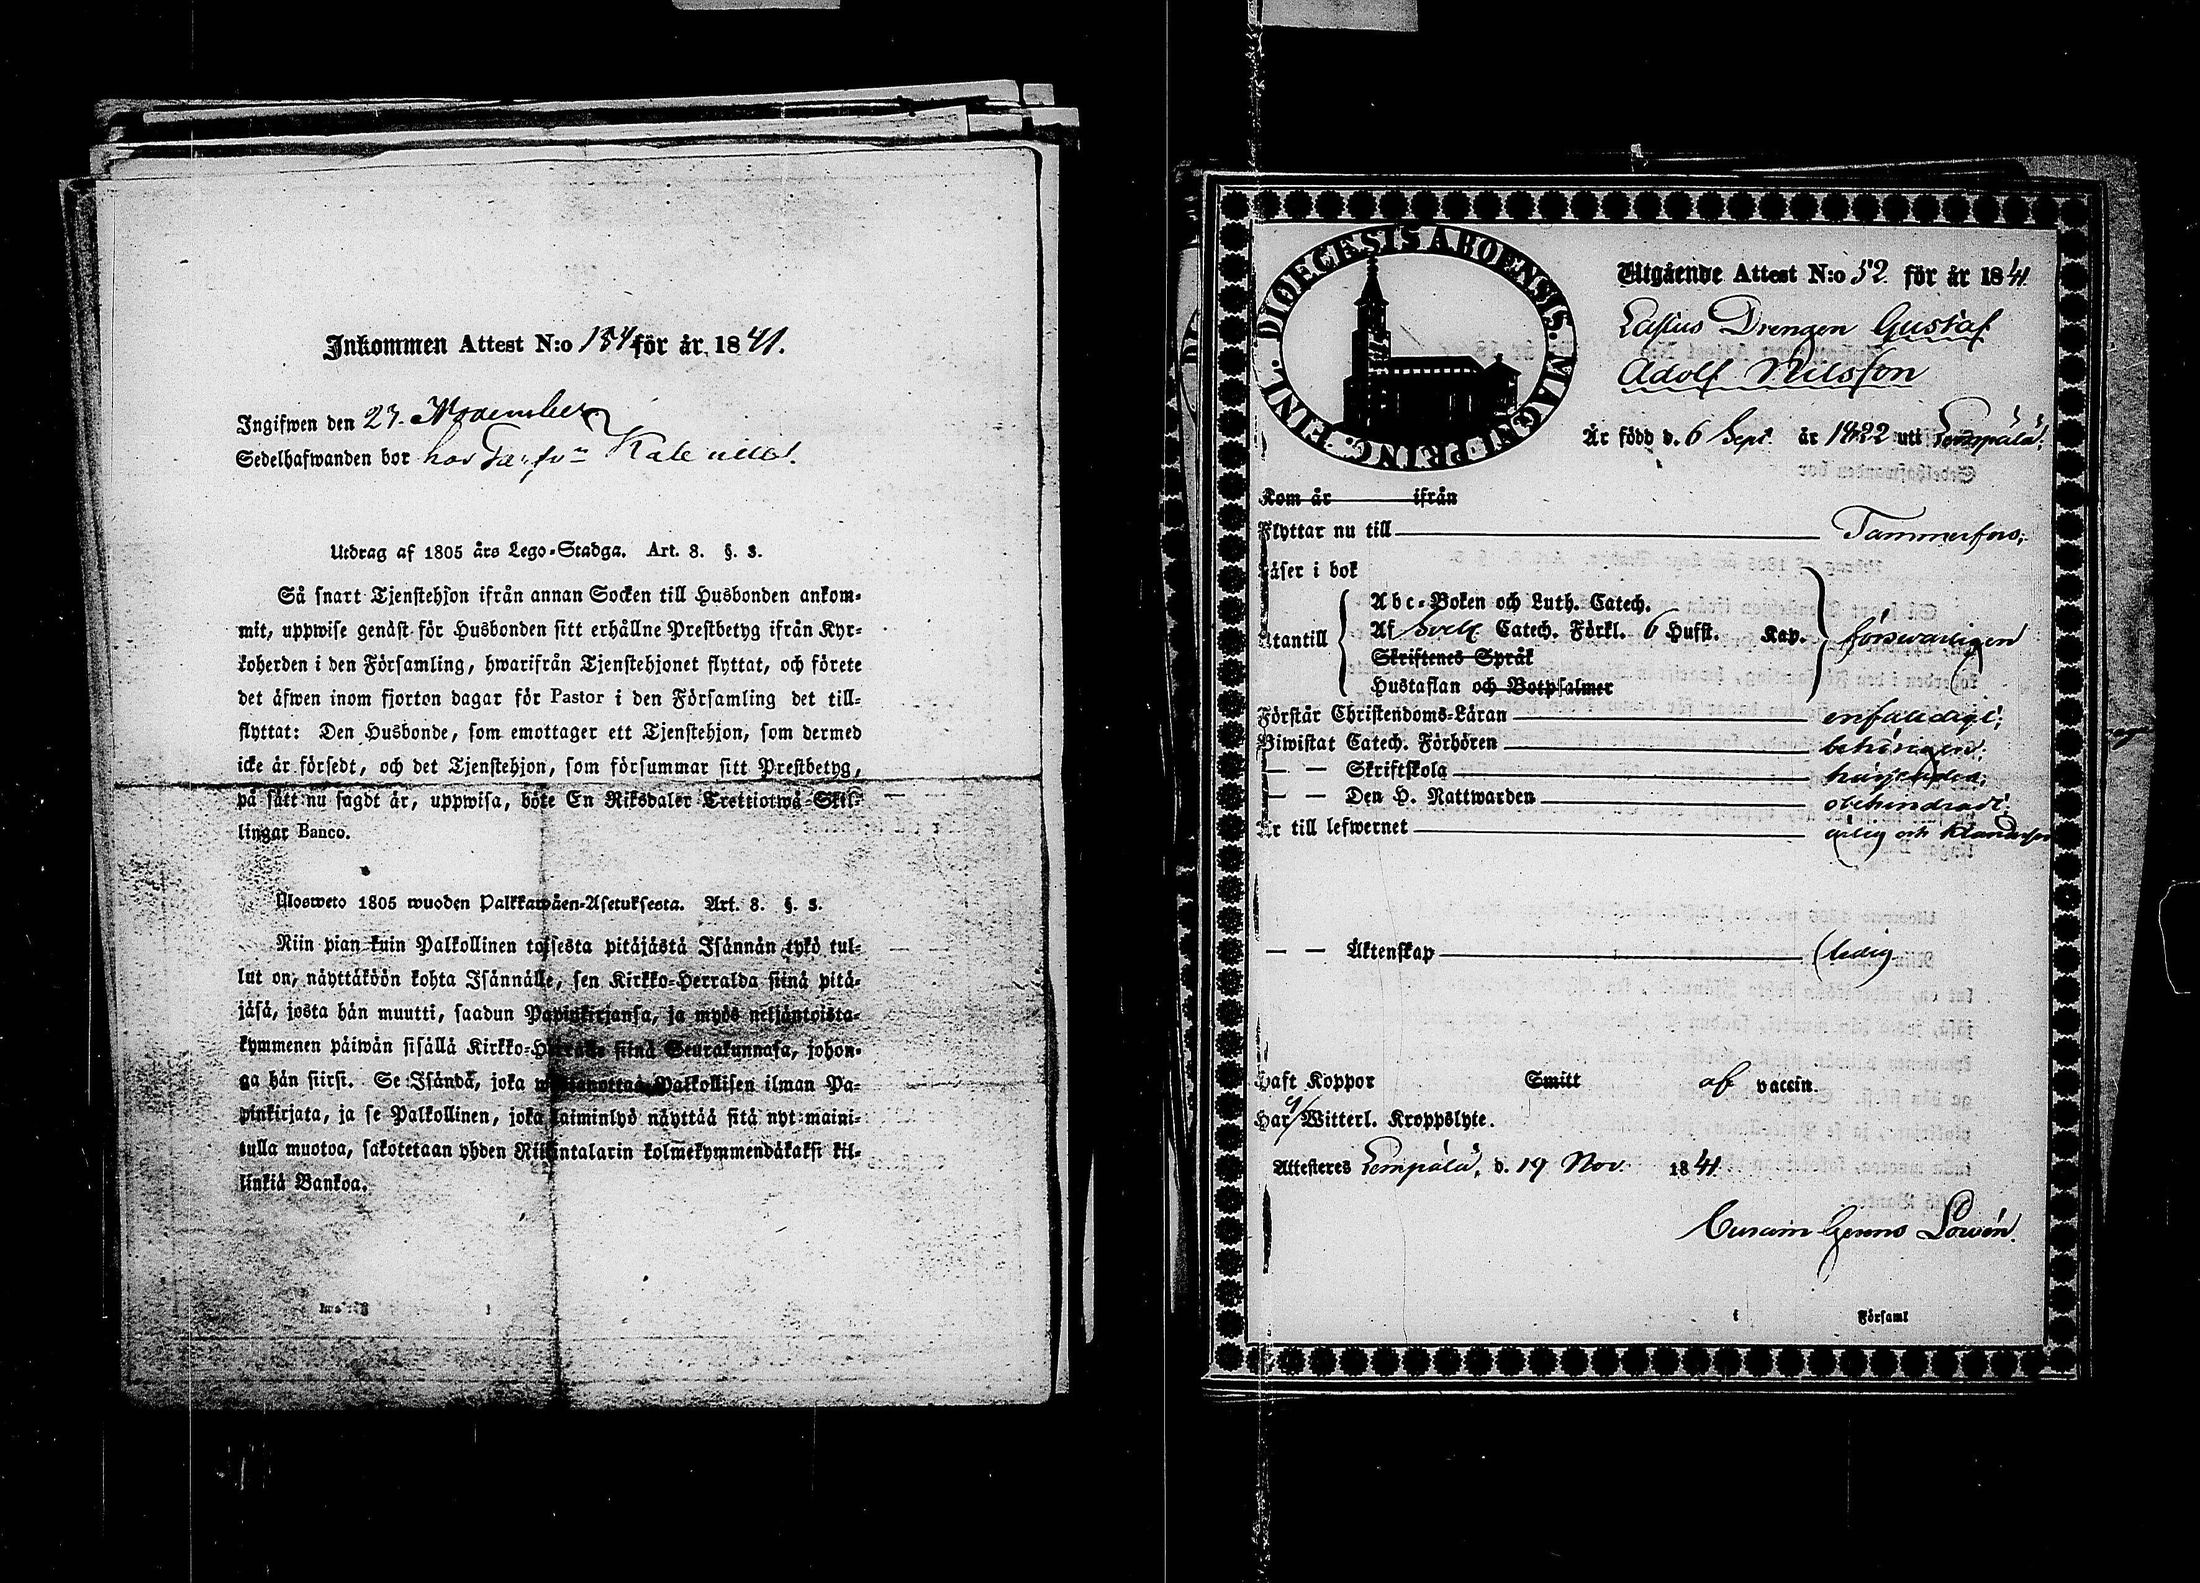 Inkommen Attest N:o 154 för år 1841.
Ingifwen den 27. November
Sedelhafwanden bor hos
Utdrag af 1805 års Lego-Stadga. Art. 8. §. 3.
Så snart Tjenstehjon ifrån annan Socken till Husbonden ankom-
mit, uppwise genast för Husbonden sitt erhållne Prestbetyg ifrån Kyr-
koherden i den Församling, hwarifrån Tjenstehjonet flyttat, och förete
det äfwen inom fjorton dagar för Pastor i den Församling det till-
flyttat: Den Husbonde, som emottager ett Tjenstehjon, som dermed
icke är försedt, och det Tjenstehjon, som försummar sitt Prestbetyg,
på sätt nu sagdt är, uppwisa, böte En Riksdaler Trettiotwå Skil-
lingar Banco.
Ulosweto 1805 wuoden Palkkawäen-Asetuksesta. Art. 8. §. 3.
Niin pian kuin Palkollinen toisesta pitäjästä Isännän tykö tul-
lut on, näyttäköön kohta Isännälle, sen Kirkko-Herralda siinä pitä-
jäsä, josta hän muutti, saadun Papinkirjansa, ja myös neljäntoista-
kymmenen päiwän sisällä Kirkko-Herralle siinä Seurakunnasa, johon-
ga hän siirsi. Se Isändä, joka Palkollisen ilman Pa-
pinkirjata, ja se Palkollinen, joka laiminlyö näyttää sitä nyt maini-
tulla muotoa, sakotetaan yhden Riksintalarin kolmekymmendäkaksi kil-
linkiä Bankoa.
DIOECESIS ABOENSIS. MAGNI PRINC. FINL.
Utgående Attest N:o 52 för år 1841
Drengen Gustaf
Adolf Nilsson
Är född d. 6 Sept. år 1822 uti Lempälä;
Kom år ifrån
Flyttar nu till Tammerfors;
Läser i bok
Utantill
Abc-Boken och Luth. Catech.
Af Sveb. Catech. Förkl. 6 Hufst. Kap. försvarligen
Skriftenes Språk
Hustaflan och Botpsalmer
Förstår Christendoms-Läran enfaldigt;
Biwistat Catech. Förhören behörigen;
— — Skriftskola
— — Den H. Nattwarden obehindradt;
Är till lefwernet ärlig och
— — Äktenskap ledig
Haft Koppor Smitt af vaccin.
Har ej Witterl. Kroppslyte.
Attesteras Lempälä, d. 19 Nov. 1841.
Curam Gerens Lovén.
Församl